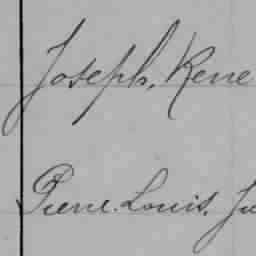 Joseph, Rene
Pierre. Louis.